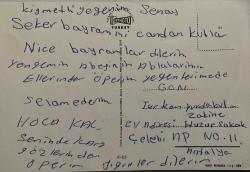 kıymetli yeğenim Senay
Şeker bayramını candan kutlar
Nice bayramlar dilerim
yengemin abeyinin ablalarımın
Ellerinden öperim yeğenlerimede
selam ederim
HOCA KAL
Seninde kara
gözlerinden
öperim
dilerim
TURKEY
EV Adresi Huzur Sokak
Çelebi AP NO-11
Antalya